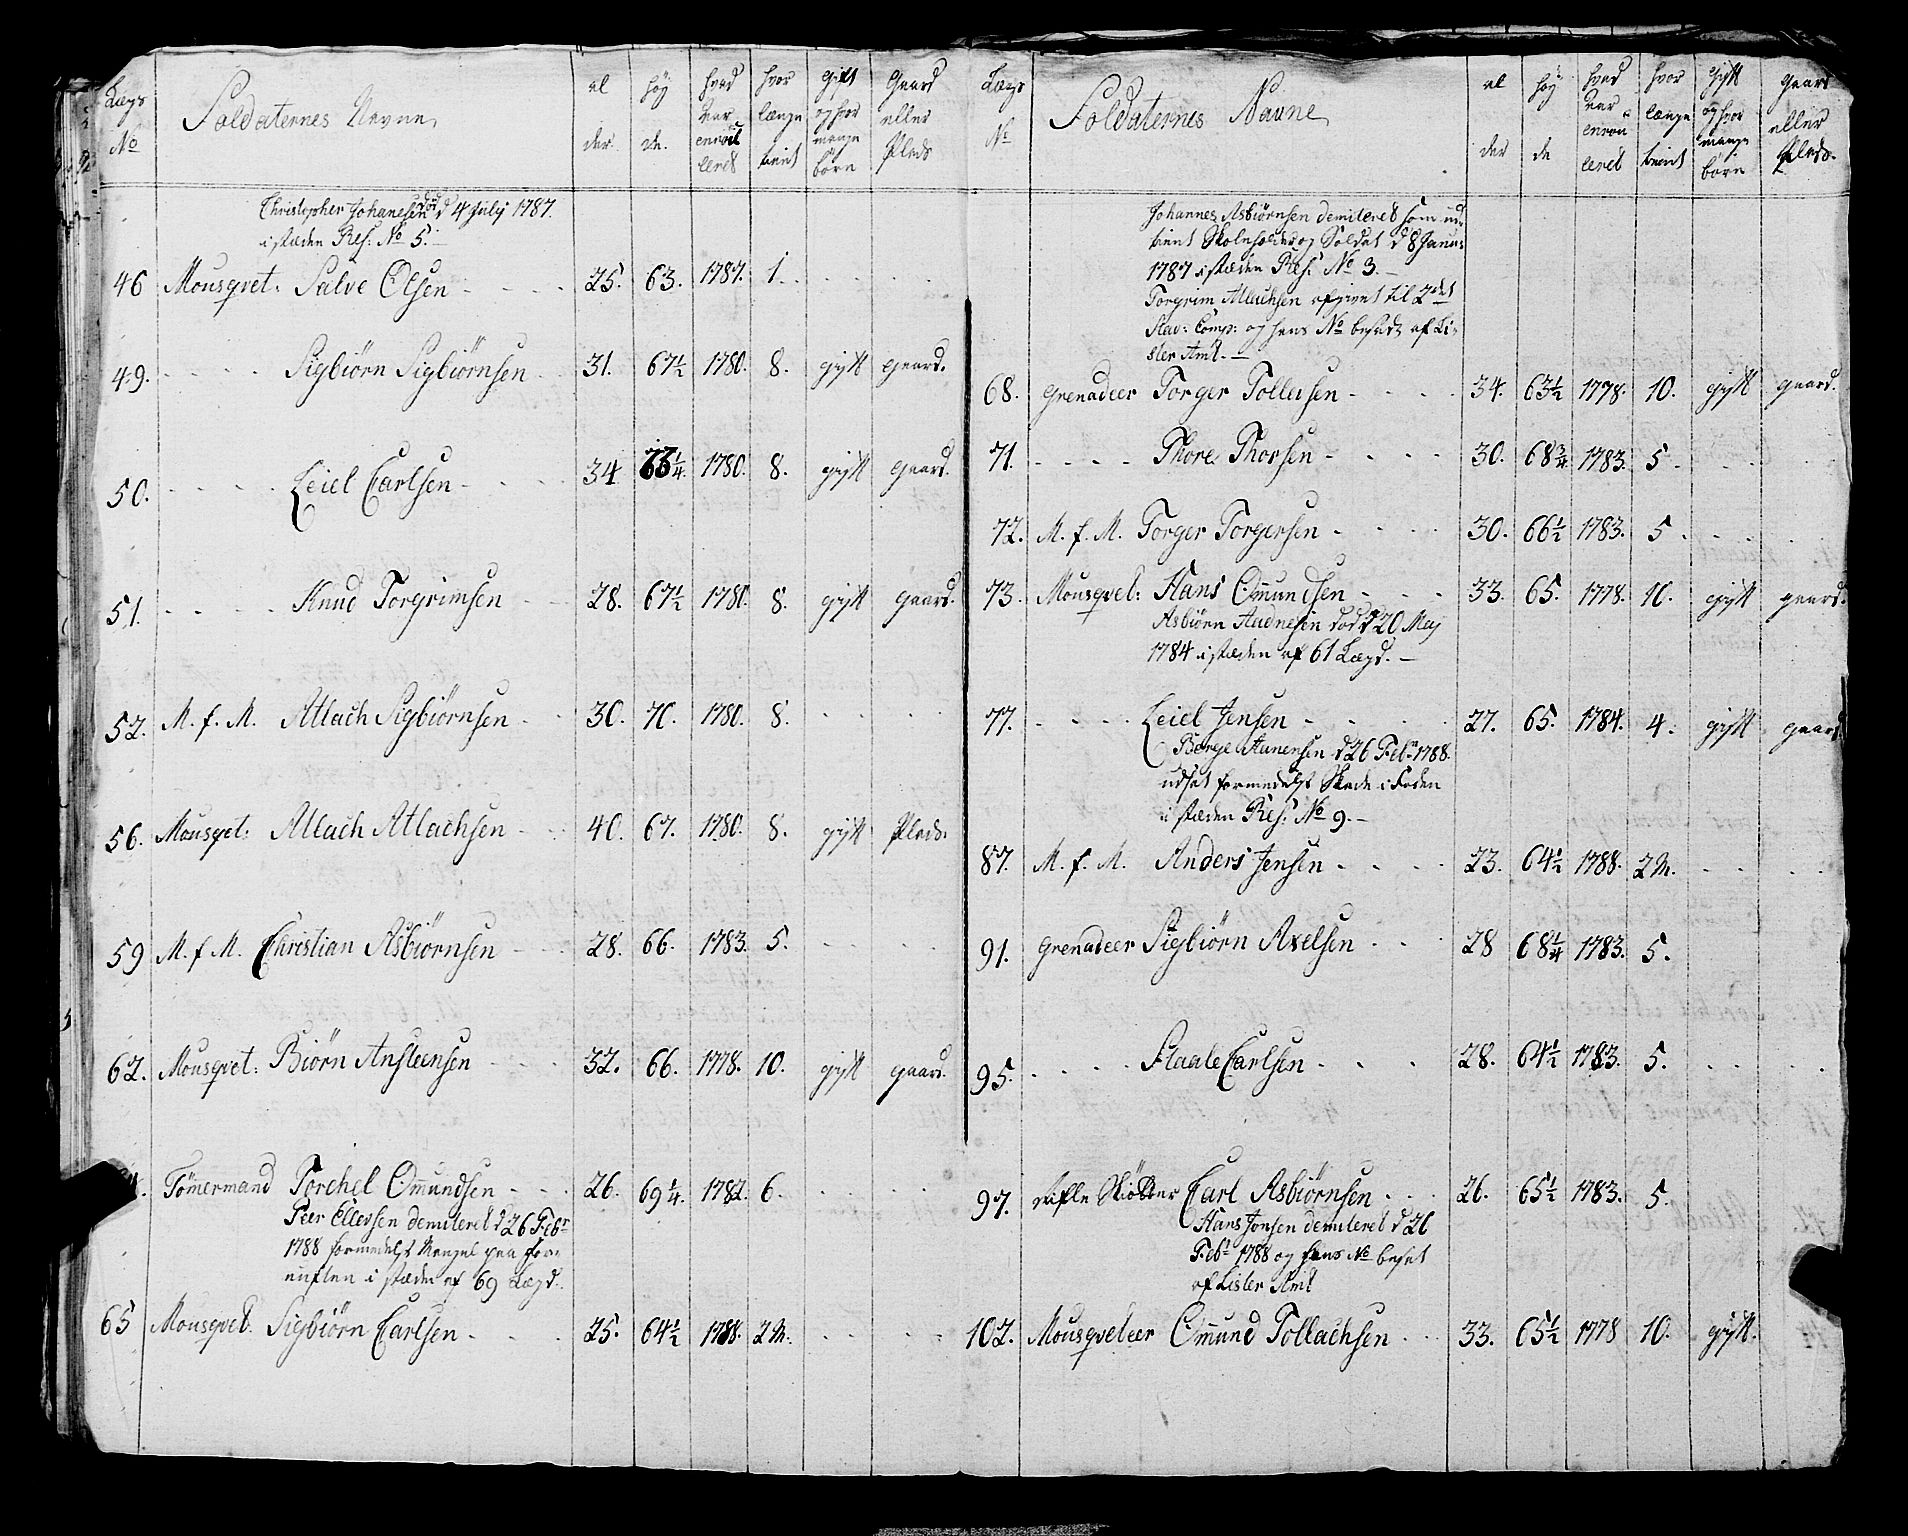 Lægs No | Soldaternes Navne | al der | høy de. | hvad aar enroul leret | hvor længe tient | Gift og hvor mange børn | Gaard eller Plads
Christopher Johanesen død d 4 July 1787.
i stæden Res: No 5.
46 Mousqvet: Salve Olsen - - - - 25. 63. 1787. 1. . . . .
49. - - - - Sigbiørn Sigbiørnsen - 31. 67½ 1780. 8. gift gaard.
50. - - - - Leiel Carlsen - - - - 34 1780. 8. gift gaard.
51. - - - - Knud Torgrimsen - - 28. 67½ 1780. 8. gift gaard.
52. M. f. M. Atlach Sigbiørnsen - - 30. 70. 1780. 8. . . . .
56. Mousqvet: Atlach Atlachsen - - 40. 67. 1780. 8. gift Plads.
59 M. f. M. Christian Asbiørnsen - - 28. 66. 1783. 5. . . . .
62. Mousqvet: Biørn Ansteensen - - - 32. 66. 1778. 10. gift gaard.
Tömermand Torchel Omundsen - - - 26. 69¼ 1782. 6. . . . .
Peer Ellevsen demiteret d 26 Febr
1788 formedelst Mangel paa For-
nuften i stæden af 69 Lægd.
65 Mousqvet. Sigbiørn Carlsen - - - - 25. 64½ 1788. 2 M. . . . .
Lægs No | Soldaternes Navne | al der | høy de | hvad aar enrou leret | hvor længe tient | Gift og hvor mange børn | Gaard eller Plads.
Johannes Asbiørnsen demiteret som ud-
tient Skoleholder og Soldat d 8 Janu:
1787 i stæden Res: No 3. -
Torgrim Atlachsen afgivet til 2det
Stav: Comp: og hans No besadt af Li-
ster Amt. -
68. Grenadeer Torger Tollevsen - - - - 34. 63½ 1778. 10. gift gaard.
71. - - - - Thore Thorsen - - - - 30. 68¾ 1783. 5 - . . .
72. M. f. M. Torger Torgersen - - - - 30. 66½ 1783. 5 . . . .
73. Mousqvet: Hans Omundsen - - - - 33. 65. 1778. 10. gift gaard.
Asbiørn Audnesen død d 20 May
1784 i stæden af 61 Lægd. -
77. - - - - Leiel Jensen - - - - 27. 65. 1784. 4. gift gaard.
Børge Aunensen d 26 Febr 1788.
udsat formedelst Skade i Foden
i stæden Res: No 9. -
87. M. f. M. Anders Jensen - - - - 23. 64½ 1788. 2 M. . . . .
91. Grenadeer Sigbiørn Axelsen - - - 28 68¼ 1783. 5.
95. - - - - Staale Carlsen - - - 28. 64½ 1783. 5. . . . .
97. Rifle Skiötter Carl Asbiørnsen - - - 26. 65½ 1783. 5.
Hans Jonsen demiteret d 26
Febr 1788 og hans No besat
af Lister Amt
102. Mousqveteer Omund Tollachsen - - 33. 65½ 1778 10. gift.